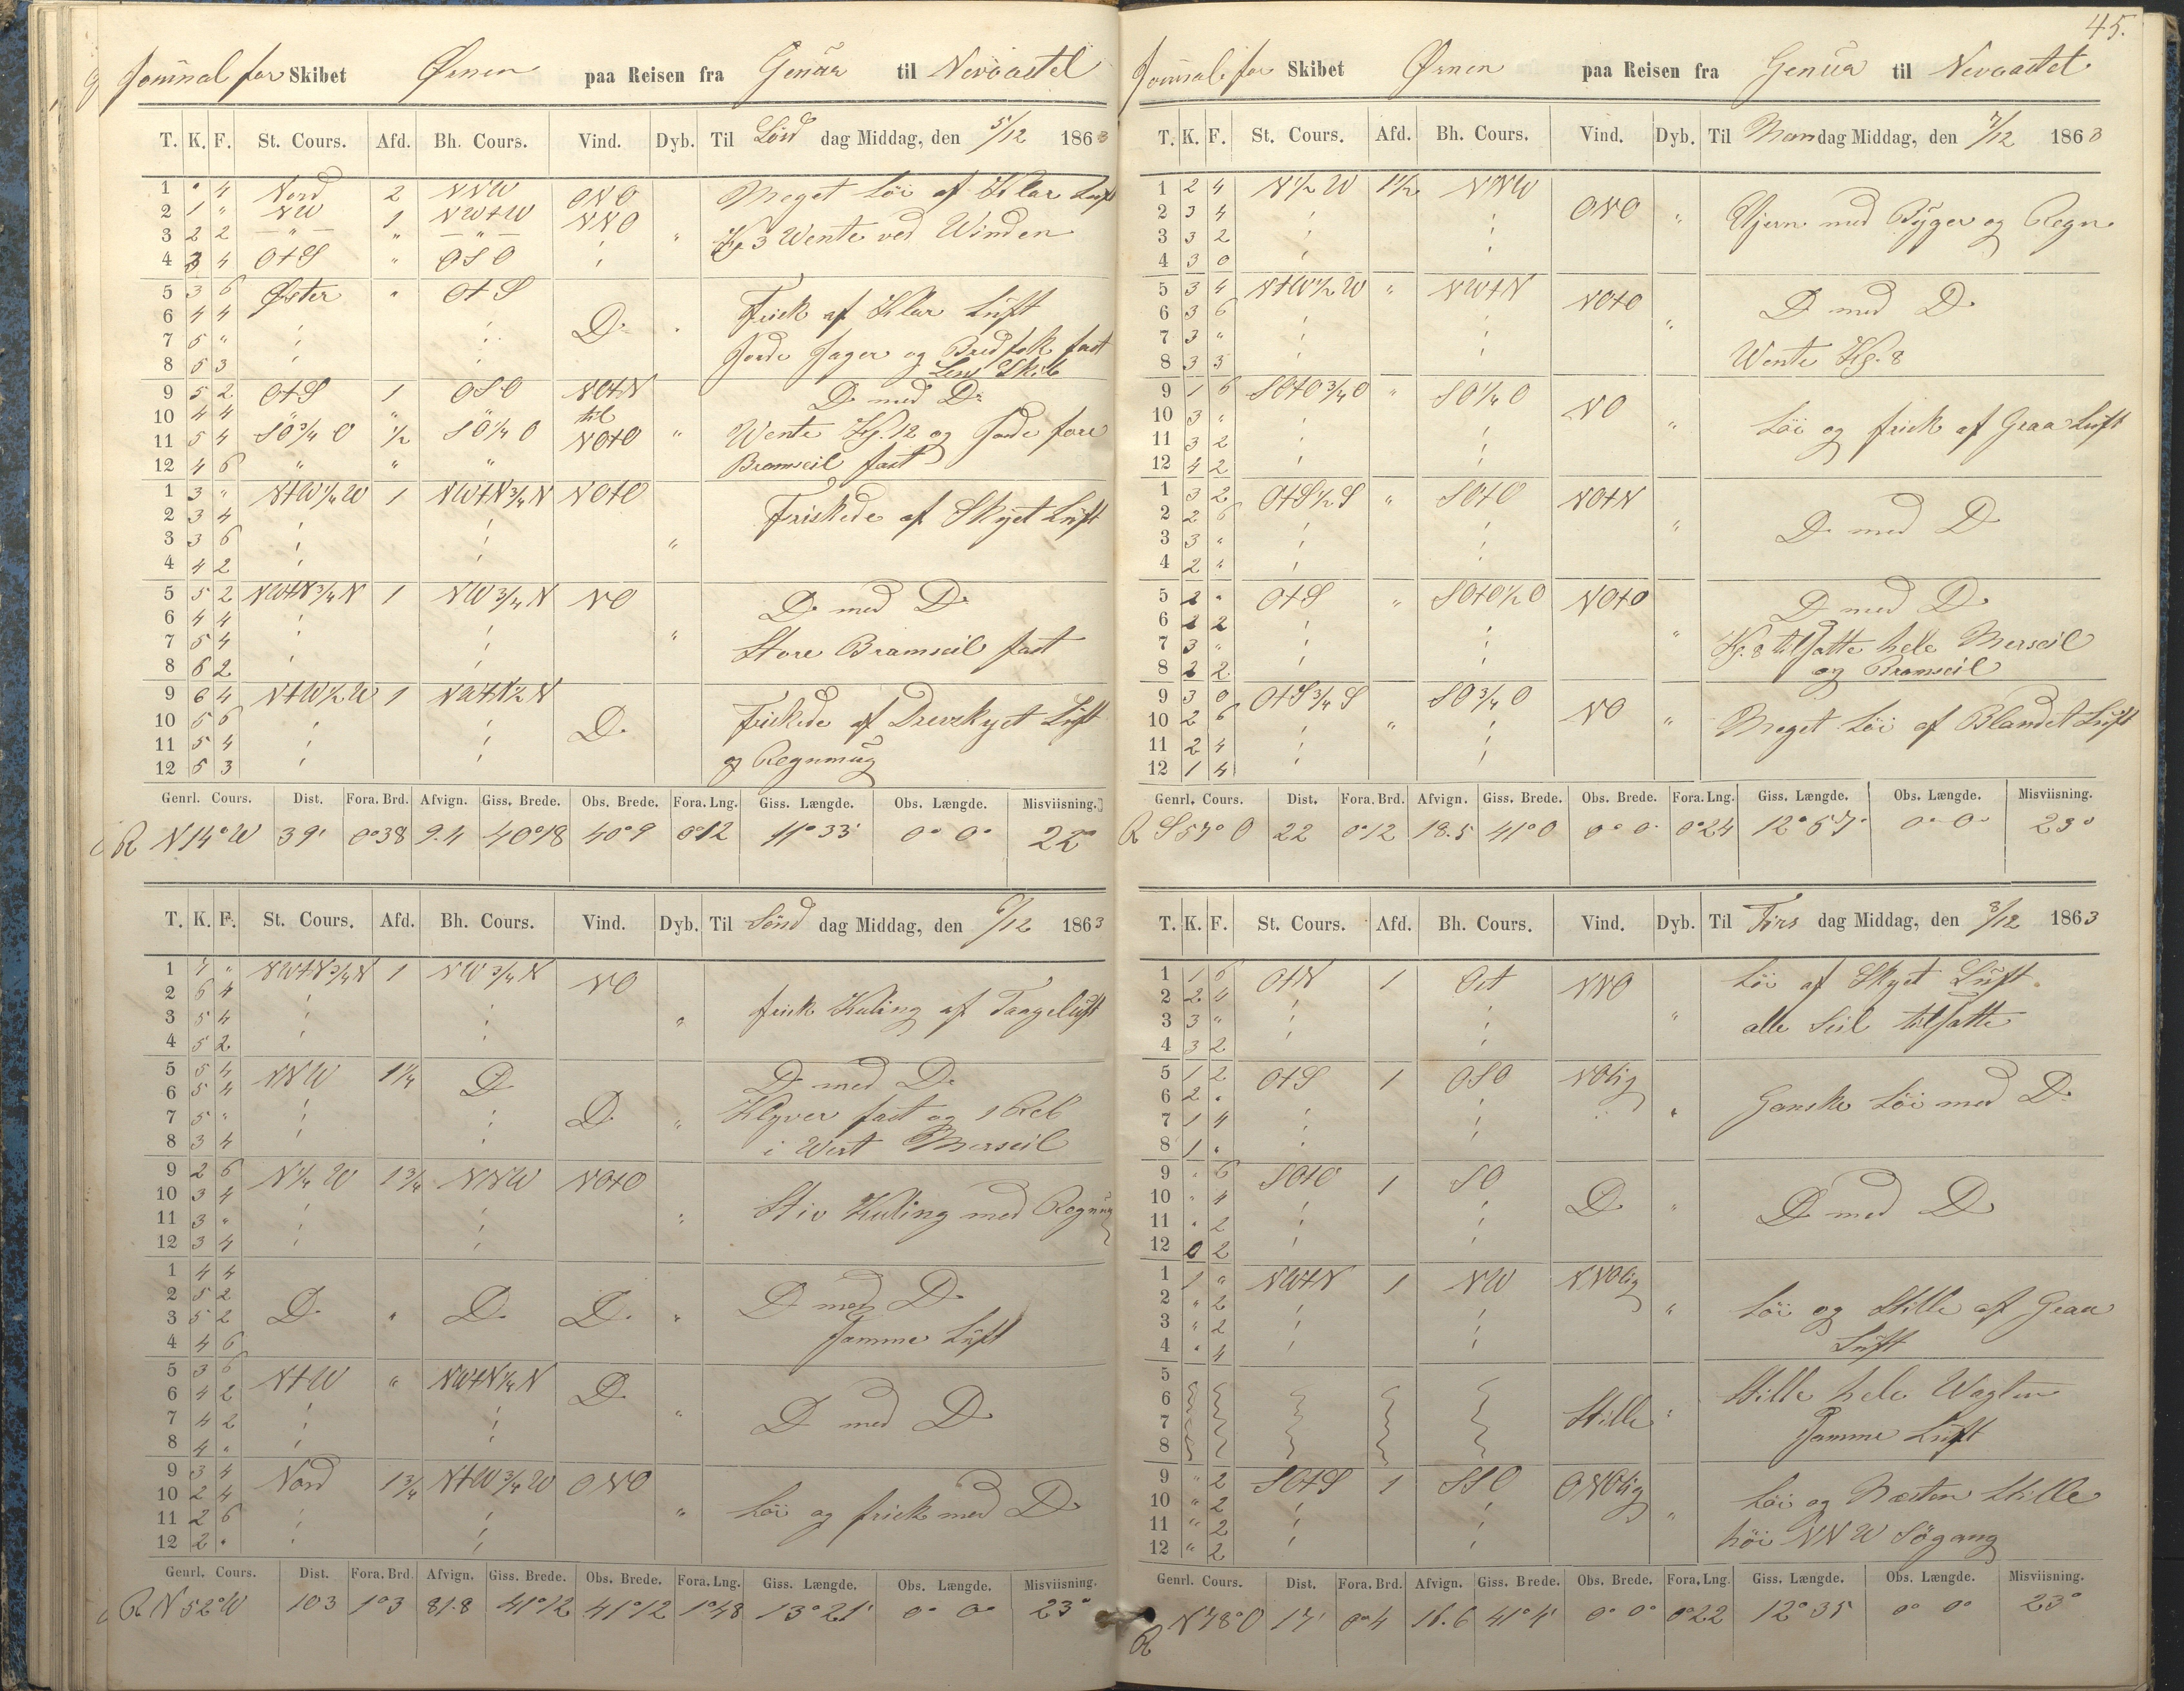 Journal for Skibet Ørnen paa Reisen fra Genua til Newcastel
T. K. F. St. Cours. Afd. Bh. Cours. Vind. Dyb. Til Lörd dag Middag, den 5/12 1863
1 " 4 Nord 2 NNW ONO Meget Löi af Klar Luft
2 1 " NW 1 NWtW NNO
3 2 2 — " — " — " — " Kl 3 Wente ved Winden
4 3 4 OtS " OSO
5 3 6 Öster " OtS
6 4 4 D. Frisk af Klar Luft
7 5 "
8 5 3 Lens Skib
9 5 2 OtS 1 OSO NOtN D med D
10 4 4 " til
11 5 4 SO 3/4 O 1/2 SO 1/4 O NOtO " Wente Kl. 12 og Gjorde fore
12 4 6 " " " Bramseil fast
1 3 " NtW 1/4 W 1 NWtN 3/4 N NOtO
2 3 4 Friskede af Skyet Luft
3 3 6 "
4 4 2
5 5 2 NWtN 3/4 N 1 NW 3/4 N NO D med D
6 4 4
7 5 4 " Store Bramseil fast
8 6 2
9 6 4 NtW 1/2 W 1 NWtN 1/2 N
10 5 6 D. Friskede af Drevskyet Luft
11 5 4
12 5 3 og Regnmug
Genrl. Cours. Dist. Fora. Brd. Afvign. Giss. Brede. Obs. Brede. Fora. Lng. Giss. Længde. Obs. Længde. Misviisning.
R N14°W 39' 0°38 9.4 40°18 40°9 0°12 11°33' 0° 0° 22°
T. K. F. St. Cours. Afd. Bh. Cours. Vind. Dyb. Til Sönd dag Middag, den 6/12 1863
1 7 " NWtN 3/4 N 1 NW 3/4 N NO
2 6 4
3 5 4 " frisk Kuling af Taageluft
4 5 2
5 5 4 NNW 1 1/4 D D med D
6 5 4
7 5 " D. " Klyver fast og 1 Reb
8 3 4 i Wert Merseil
9 2 6 N 1/4 W 1 3/4 NNW NOtO
10 3 4
11 3 " " Stiv Kuling med Regnmug
12 3 4
1 4 4
2 5 2 D med D
3 5 2 D. " D. D. "
4 4 6 Samme Luft
5 3 6 NtW " NWtN 1/4 N D.
6 4 2
7 4 2 " D med D
8 4 "
9 3 4 Nord 1 3/4 NtW 3/4 W ONO
10 2 4
11 2 6 " Löi og frisk med D
12 2 "
Genrl. Cours. Dist. Fora. Brd. Afvign. Giss. Brede. Obs. Brede. Fora. Lng. Giss. Længde. Obs. Længde. Misviisning.
R N52°W 103 1°3 81.8 41°12 41°12 1°48 13°21' 0° 0° 23°
45.
Journal for Skibet Ørnen paa Reisen fra Genua til Newcastel
T. K. F. St. Cours. Afd. Bh. Cours. Vind. Dyb. Til Mandag Middag, den 7/12 1863
1 2 4 N 1/2 W 1 1/2 NNW
2 3 4 ONO " Ujevn med Byger og Regn
3 3 2
4 3 0
5 3 4 NtW 1/2 W " NWtN NOtO
6 3 6 D med D
7 3 " "
8 3 3 Wente Kl. 8
9 1 6 SOtO 3/4 O " SO 1/4 O NO
10 3 "
11 3 2 " Löi og frisk af Graa Luft
12 4 2
1 3 2 OtS 1/2 S " SOtO NOtN
2 2 6
3 3 " " D med D
4 2 "
5 2 " OtS " SOtO 1/2 O NOtO D med D
6 2 2
7 3 " " Kl. 8 tilsatte hele Merseil
8 2 2 og Bramseil
9 3 0 OtS 3/4 S SO 3/4 O
10 2 6 " NO " Meget Löi af Blandet Luft
11 2 4
12 1 4
Genrl. Cours. Dist. Fora. Brd. Afvign. Giss. Brede. Obs. Brede. Fora. Lng. Giss. Længde. Obs. Længde. Misviisning.
R S57°O 22 0°12 18.5 41°0 0° 0° 0°24 12°57' 0° 0° 23°
T. K. F. St. Cours. Afd. Bh. Cours. Vind. Dyb. Til Tirs dag Middag, den 8/12 1863
1 1 6 OtN 1 Ost NNO Löi af Skyet Luft
2 2 4
3 3 " " alle Seil tilsatte
4 3 2
5 1 2 OtS 1 OSO NOlig
6 2 " " Ganske Löi med D
7 1 4
8 1 "
9 " 6 SOtO 1 SO
10 " 4 D " D med D
11 " 2
12 0 2
1 1 " NWtN 1 NW NNOlig
2 " 2 " Löi og Stille af Graa
3 " 2
4 " 4 Luft
5
6 Stille hele Wagten
7 Stille "
8 Samme Luft
9 " 2 SOtS 1 SSO ONOlig
10 " 2 Löi og Næsten Stille
11 " 2 "
12 " 2 höi NNW Sögang
Genrl. Cours. Dist. Fora. Brd. Afvign. Giss. Brede. Obs. Brede. Fora. Lng. Giss. Længde. Obs. Længde. Misviisning.
R N78°O 17' 0°4 16.6 41°4' 0° 0° 0°22 12°35 0° 0° 23°